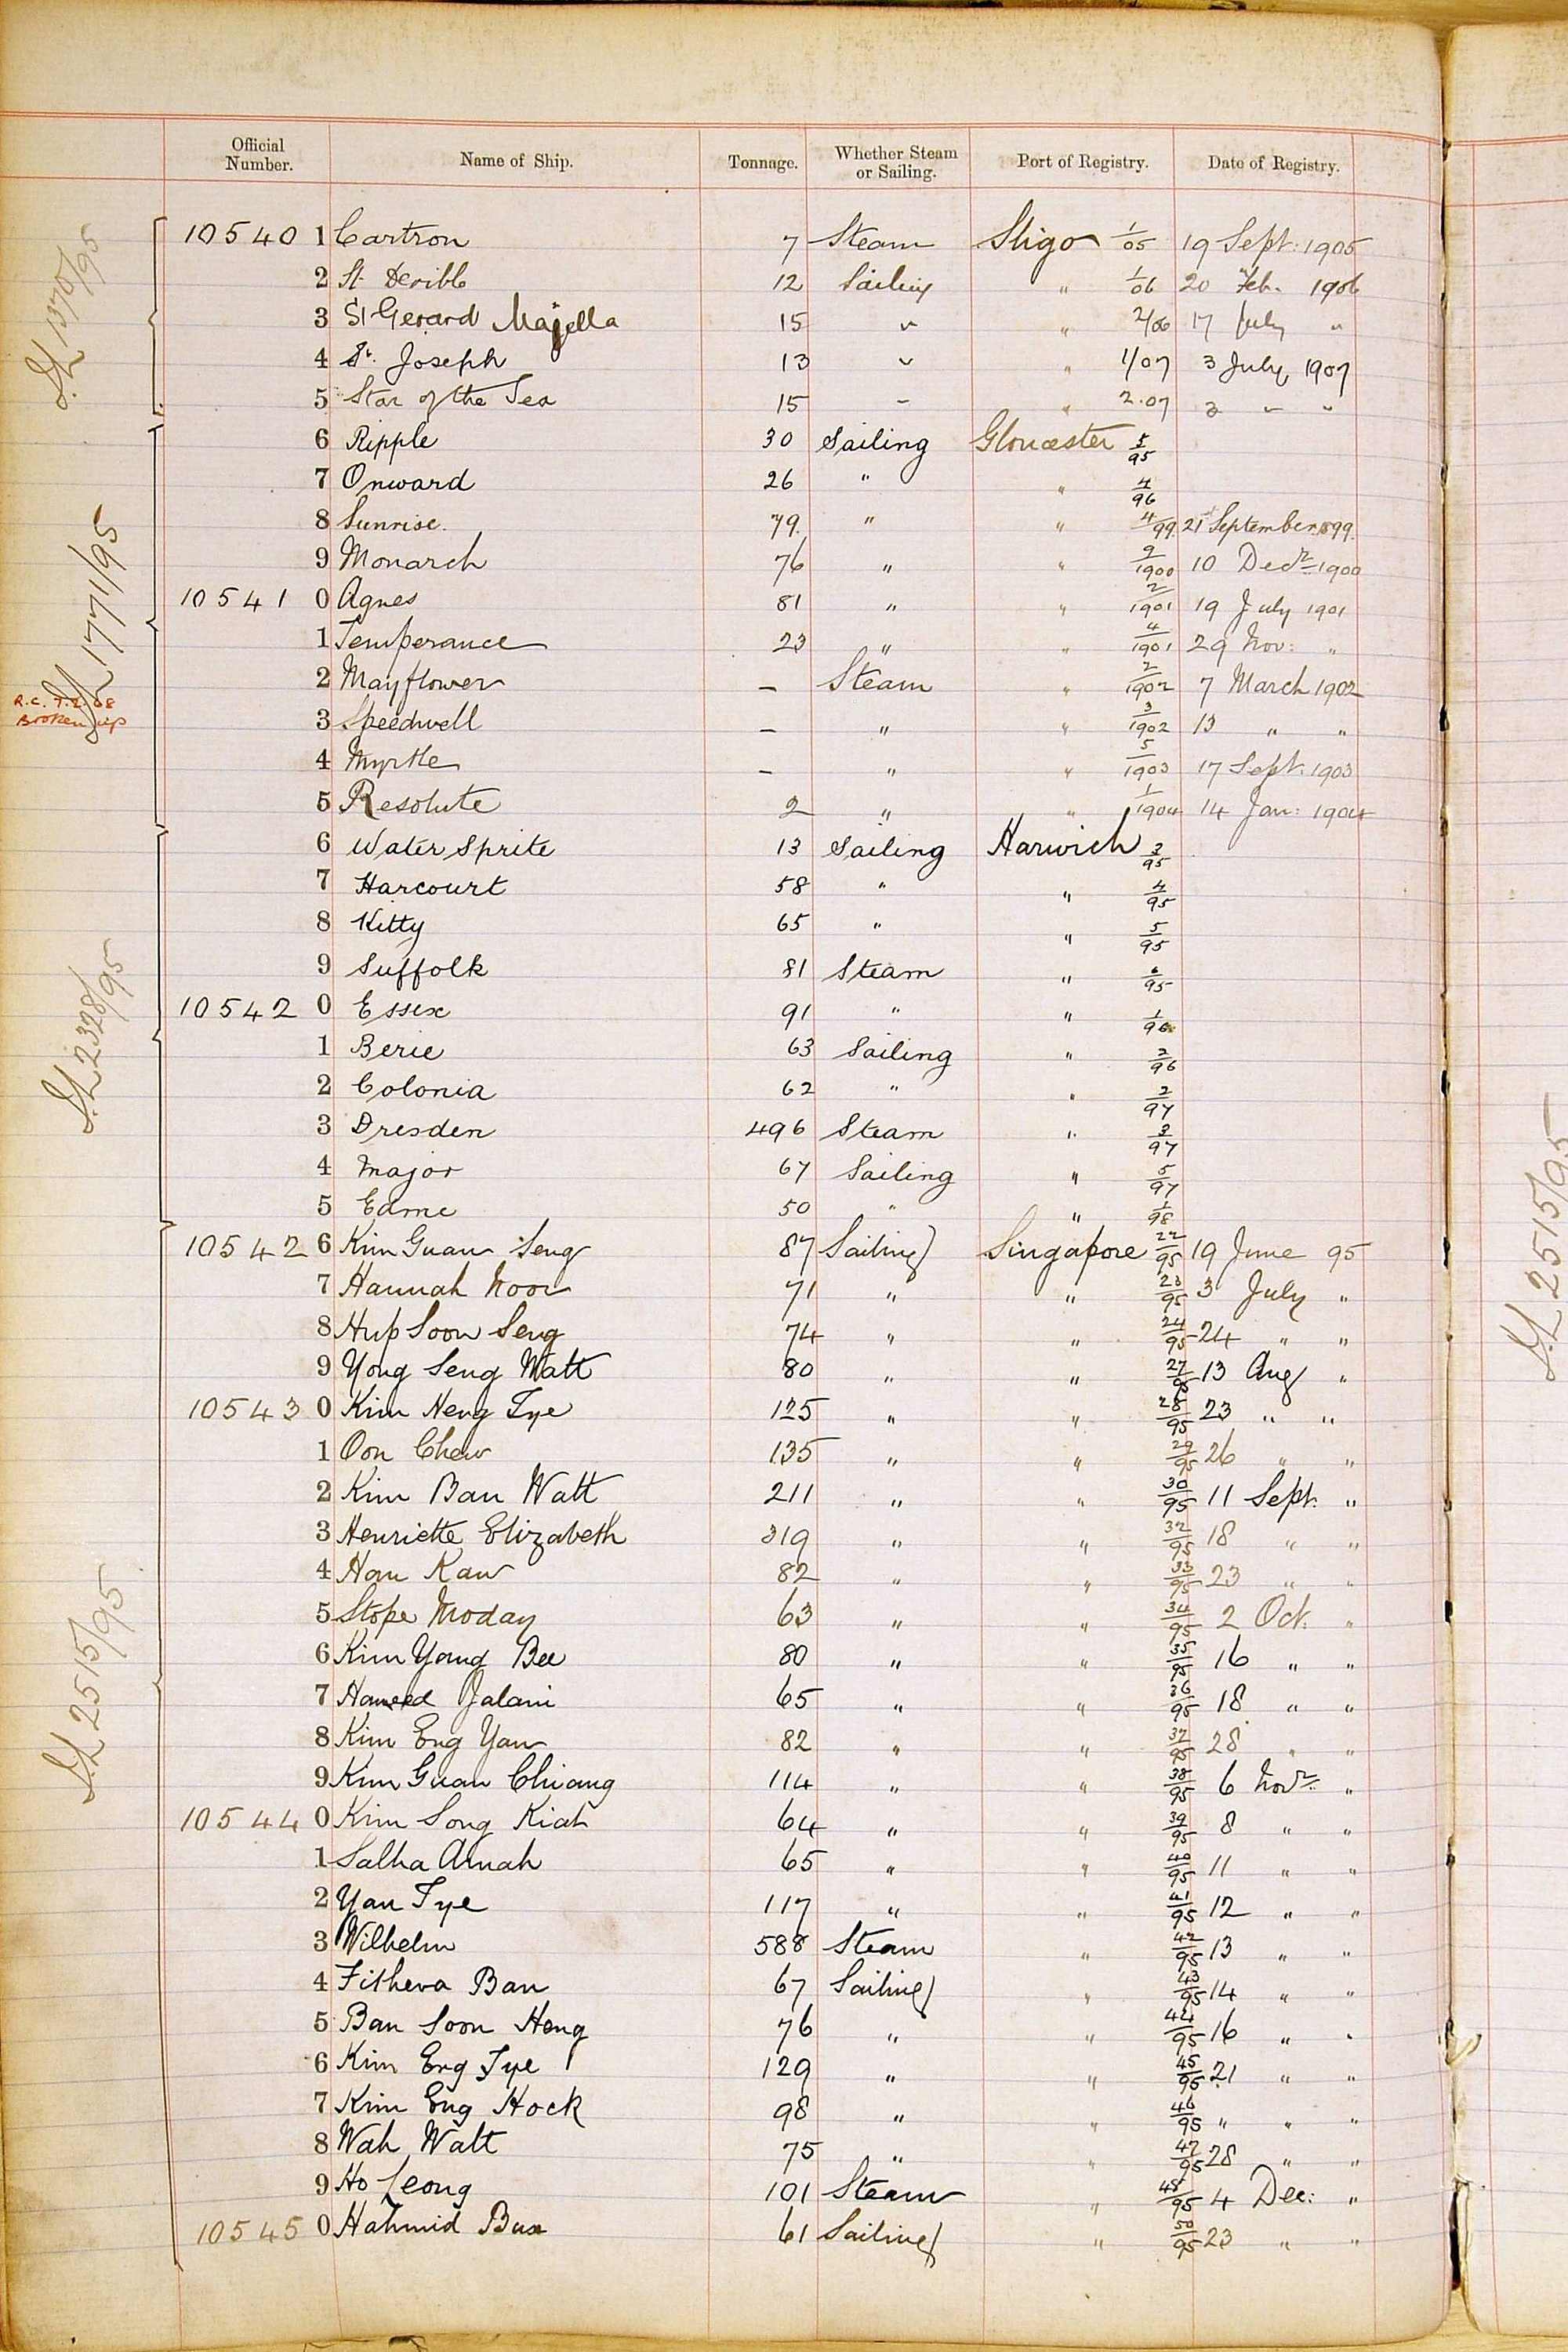 Official Number. Name of Ship. Tonnage. Whether Steam or Sailing. Port of Registry. Date of Registry.
S.L 1370/95
10540 1 Cartron 7 Steam Sligo 1/05 19 Sept: 1905
2 St 12 Sailing " 1/06 20 Feb. 1906
3 St Gerard Majella 15 " " 2/06 17 July "
4 St. Joseph 13 " " 1/07 3 July 1907
5 Star of the Sea 15 " " 2.07 3 " "
S.L 1771/95
6 Ripple 30 Sailing Gloucester 5/95
7 Onward 26 " " 4/96
8 Sunrise 79 " " 4/99 21st September 1899
9 Monarch 76 " " 9/1900 10 Decr 1900
10541 0 Agnes 81 " " 2/1901 19 July 1901
1 Temperance 23 " " 4/1901 29 Nov: "
2 Mayflower – Steam " 2/1902 7 March 1902
R.C. Broken up
3 Speedwell – " " 3/1902 13 " "
4 Myrtle – " " 5/1903 17 Sept. 1903
5 Resolute 2 " " 1/1904 14 Jan: 1904
S.L 2328/95
6 Water Sprite 13 Sailing Harwich 3/95
7 Harcourt 58 " " 4/95
8 Kitty 65 " " 5/95
9 Suffolk 81 Steam " 6/95
10542 0 Essex 91 " " 1/96
1 Berie 63 Sailing " 2/96
2 Colonia 62 " " 2/97
3 Dresden 496 Steam " 3/97
4 Major 67 Sailing " 5/97
5 Edme 50 " " 1/98
S.L 2515/95
10542 6 Kim Guan Seng 87 Sailing Singapore 22/95 19 June 95
7 Hannah Noor 71 " " 23/95 3 July "
8 Hup Soon Seng 74 " " 24/95 24 " "
9 Yong Seng Watt 80 " " 27/95 13 Aug "
10543 0 Kim Heng Tye 125 " " 28/95 23 " "
1 Oon Chew 135 " " 29/95 26 " "
2 Kim Ban Watt 211 " " 30/95 11 Sept. "
3 Henriette Elizabeth 319 " " 32/95 18 " "
4 Han Kaw 82 " " 33/95 23 " "
5 Stope Moday 63 " " 34/95 2 Oct. "
6 Kim Yong Bee 80 " " 35/95 16 " "
7 Hameed Jalani 65 " " 36/95 18 " "
8 Kim Eng Yaw 82 " " 37/95 28 " "
9 Kim Guan Chiang 114 " " 38/95 6 Novr "
10544 0 Kim Song Kiah 64 " " 39/95 8 " "
1 Salha Amah 65 " " 40/95 11 " "
2 Yan Tye 117 " " 41/95 12 " "
3 Wilhelm 588 Steam " 42/95 13 " "
4 Fitheva Ban 67 Sailing " 43/95 14 " "
5 Ban Soon Heng 76 " " 44/95 16 " "
6 Kim Eng Tye 129 " " 45/95 21 " "
7 Kim Eng Hock 98 " " 46/95 " " "
8 Wah Watt 75 " " 47/95 28 " "
9 Ho Leong 101 Steam " 48/95 4 Dec: "
10545 0 Hahmid Bux 61 Sailing " 50/95 23 " "
S.L 2515/95